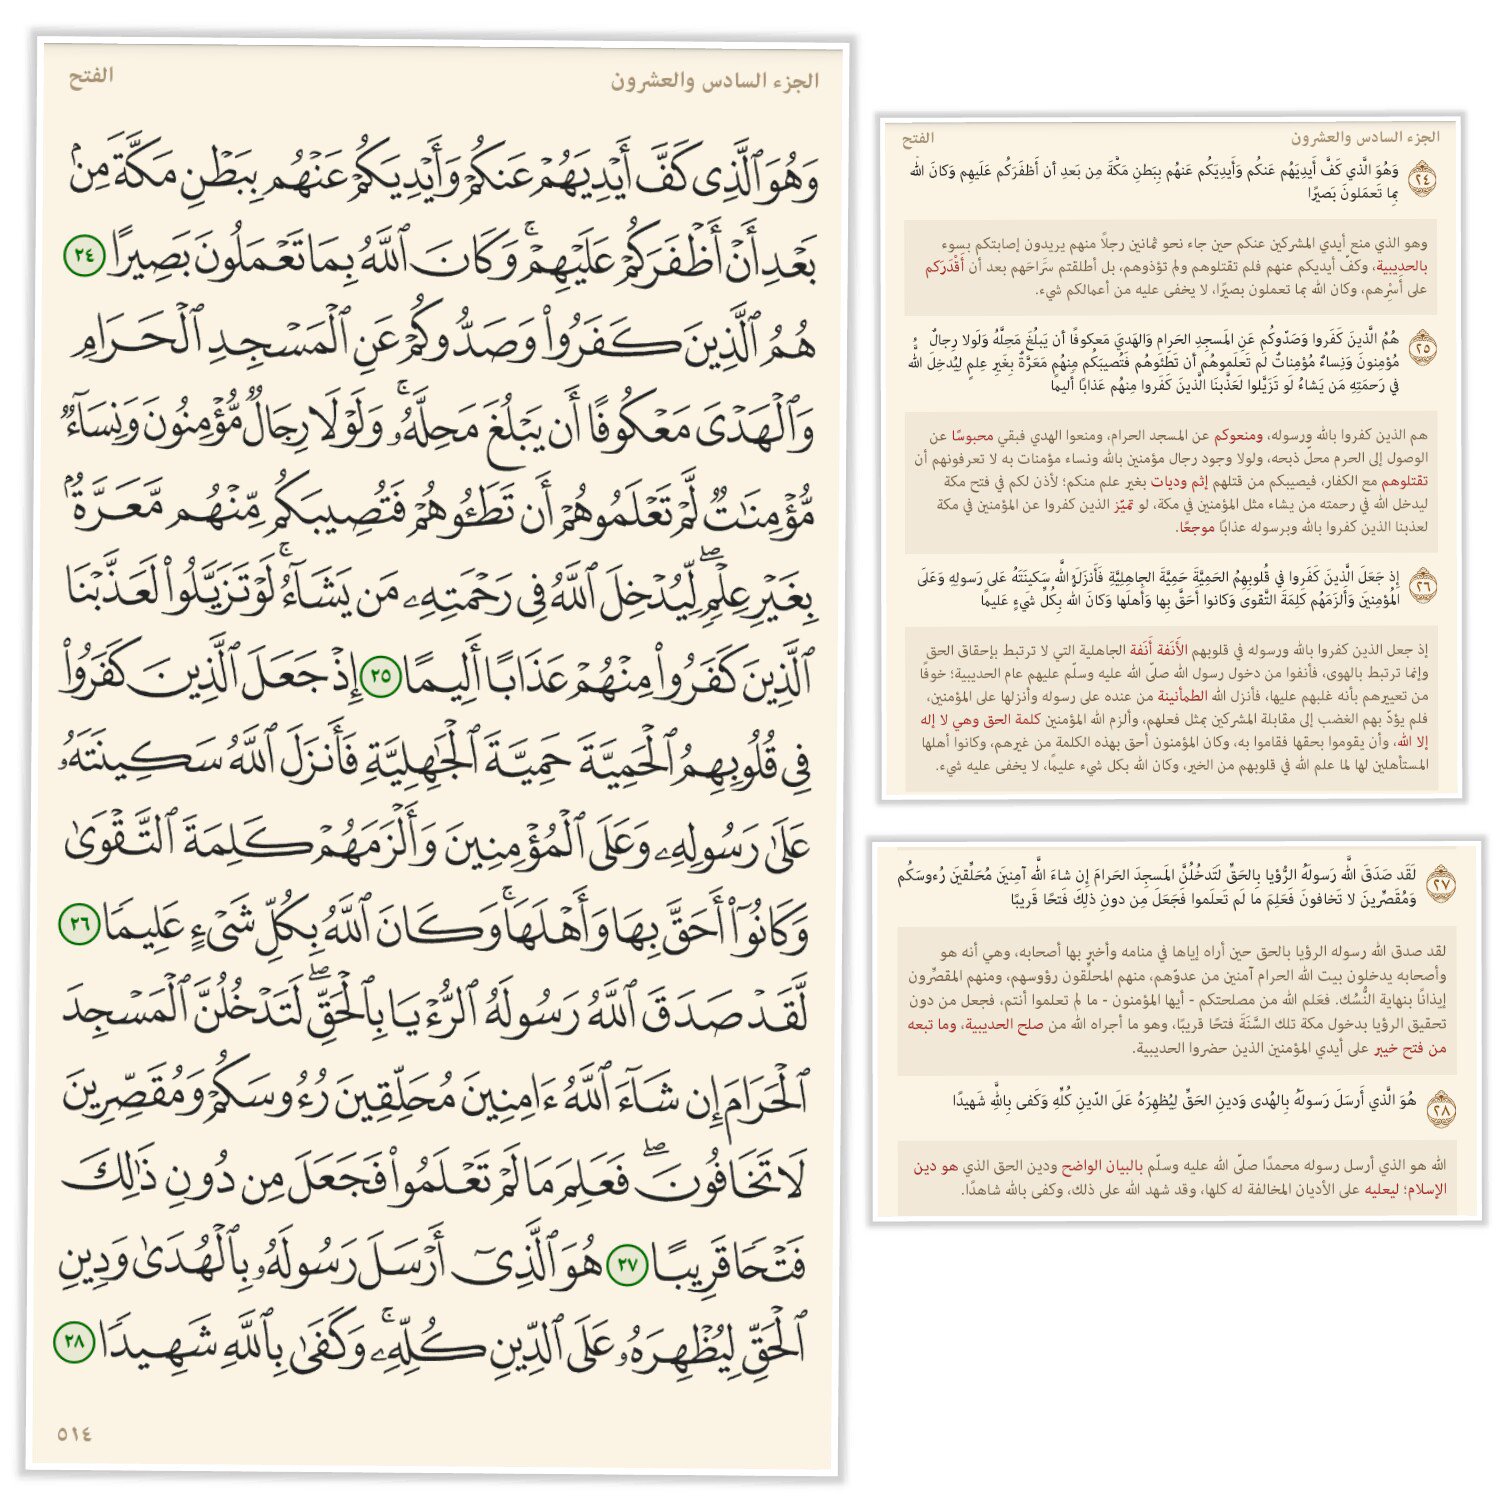 الجزء السادس والعشرون
الفتح
وَهُوَ ٱلَّذِى كَفَّ أَيْدِيَهُمْ عَنكُمْ وَأَيْدِيَكُمْ عَنْهُم بِبَطْنِ مَكَّةَ مِنۢ
بَعْدِ أَنْ أَظْفَرَكُمْ عَلَيْهِمْ ۚ وَكَانَ ٱللَّهُ بِمَا تَعْمَلُونَ بَصِيرًا ٢٤
هُمُ ٱلَّذِينَ كَفَرُوا۟ وَصَدُّوكُمْ عَنِ ٱلْمَسْجِدِ ٱلْحَرَامِ
وَٱلْهَدْىَ مَعْكُوفًا أَن يَبْلُغَ مَحِلَّهُۥ ۚ وَلَوْلَا رِجَالٌ مُّؤْمِنُونَ وَنِسَآءٌ
مُّؤْمِنَٰتٌ لَّمْ تَعْلَمُوهُمْ أَن تَطَـُٔوهُمْ فَتُصِيبَكُم مِّنْهُم مَّعَرَّةٌۢ
بِغَيْرِ عِلْمٍ ۖ لِّيُدْخِلَ ٱللَّهُ فِى رَحْمَتِهِۦ مَن يَشَآءُ ۚ لَوْ تَزَيَّلُوا۟ لَعَذَّبْنَا
ٱلَّذِينَ كَفَرُوا۟ مِنْهُمْ عَذَابًا أَلِيمًا ٢٥ إِذْ جَعَلَ ٱلَّذِينَ كَفَرُوا۟
فِى قُلُوبِهِمُ ٱلْحَمِيَّةَ حَمِيَّةَ ٱلْجَٰهِلِيَّةِ فَأَنزَلَ ٱللَّهُ سَكِينَتَهُۥ
عَلَىٰ رَسُولِهِۦ وَعَلَى ٱلْمُؤْمِنِينَ وَأَلْزَمَهُمْ كَلِمَةَ ٱلتَّقْوَىٰ
وَكَانُوٓا۟ أَحَقَّ بِهَا وَأَهْلَهَا ۚ وَكَانَ ٱللَّهُ بِكُلِّ شَىْءٍ عَلِيمًا ٢٦
لَّقَدْ صَدَقَ ٱللَّهُ رَسُولَهُ ٱلرُّءْيَا بِٱلْحَقِّ ۖ لَتَدْخُلُنَّ ٱلْمَسْجِدَ
ٱلْحَرَامَ إِن شَآءَ ٱللَّهُ ءَامِنِينَ مُحَلِّقِينَ رُءُوسَكُمْ وَمُقَصِّرِينَ
لَا تَخَافُونَ ۖ فَعَلِمَ مَا لَمْ تَعْلَمُوا۟ فَجَعَلَ مِن دُونِ ذَٰلِكَ
فَتْحًا قَرِيبًا ٢٧ هُوَ ٱلَّذِىٓ أَرْسَلَ رَسُولَهُۥ بِٱلْهُدَىٰ وَدِينِ
ٱلْحَقِّ لِيُظْهِرَهُۥ عَلَى ٱلدِّينِ كُلِّهِۦ ۚ وَكَفَىٰ بِٱللَّهِ شَهِيدًا ٢٨
٥١٤
الجزء السادس والعشرون
الفتح
٢٤ وَهُوَ الَّذي كَفَّ أَيدِيَهُم عَنكُم وَأَيدِيَكُم عَنهُم بِبَطنِ مَكَّةَ مِن بَعدِ أَن أَظفَرَكُم عَلَيهِم وَكانَ اللَّه
بِما تَعمَلونَ بَصيرًا
وهو الذي منع أيدي المشركين عنكم حين جاء نحو ثمانين رجلًا منهم يريدون إصابتكم بسوء
بالحديبية، وكفّ أيديكم عنهم فلم تقتلوهم ولم تؤذوهم، بل أطلقتم سَرَاحَهم بعد أن أَقْدَرَكم
على أَسْرِهم، وكان الله بما تعملون بصيرًا، لا يخفى عليه من أعمالكم شيء.
٢٥ هُمُ الَّذينَ كَفَروا وَصَدّوكُم عَنِ المَسجِدِ الحَرامِ وَالهَديَ مَعكوفًا أَن يَبلُغَ مَحِلَّهُ وَلَولا رِجالٌ
مُؤمِنونَ وَنِساءٌ مُؤمِناتٌ لَم تَعلَموهُم أَن تَطَئوهُم فَتُصيبَكُم مِنهُم مَعَرَّةٌ بِغَيرِ عِلمٍ لِيُدخِلَ اللَّه
في رَحمَتِهِ مَن يَشاءُ لَو تَزَيَّلوا لَعَذَّبنَا الَّذينَ كَفَروا مِنهُم عَذابًا أَليمًا
هم الذين كفروا بالله ورسوله، ومنعوكم عن المسجد الحرام، ومنعوا الهدي فبقي محبوسًا عن
الوصول إلى الحرم محلّ ذبحه، ولولا وجود رجال مؤمنين بالله ونساء مؤمنات به لا تعرفونهم أن
تقتلوهم مع الكفار، فيصيبكم من قتلهم إثم وديات بغير علم منكم؛ لأذن لكم في فتح مكة
ليدخل الله في رحمته من يشاء مثل المؤمنين في مكة، لو تميّز الذين كفروا عن المؤمنين في مكة
لعذبنا الذين كفروا بالله وبرسوله عذابًا موجعًا.
٢٦ إِذ جَعَلَ الَّذينَ كَفَروا في قُلوبِهِمُ الحَمِيَّةَ حَمِيَّةَ الجاهِلِيَّةِ فَأَنزَلَ اللَّه سَكينَتَهُ عَلى رَسولِهِ وَعَلَى
المُؤمِنينَ وَأَلزَمَهُم كَلِمَةَ التَّقوى وَكانوا أَحَقَّ بِها وَأَهلَها وَكانَ اللَّه بِكُلِّ شَيءٍ عَليمًا
إذ جعل الذين كفروا بالله ورسوله في قلوبهم الأَنَفة أَنَفة الجاهلية التي لا ترتبط بإحقاق الحق
وإنما ترتبط بالهوى، فأنفوا من دخول رسول الله صلّى الله عليه وسلّم عليهم عام الحديبية؛ خوفًا
من تعييرهم بأنه غلبهم عليها، فأنزل الله الطمأنينة من عنده على رسوله وأنزلها على المؤمنين،
فلم يؤدّ بهم الغضب إلى مقابلة المشركين بمثل فعلهم، وألزم الله المؤمنين كلمة الحق وهي لا إله
إلا الله، وأن يقوموا بحقها فقاموا به، وكان المؤمنون أحق بهذه الكلمة من غيرهم، وكانوا أهلها
المستأهلين لها لما علم الله في قلوبهم من الخير، وكان الله بكل شيء عليمًا، لا يخفى عليه شيء.
٢٧ لَقَد صَدَقَ اللَّه رَسولَهُ الرُّؤيا بِالحَقِّ لَتَدخُلُنَّ المَسجِدَ الحَرامَ إِن شاءَ اللَّه آمِنينَ مُحَلِّقينَ رُءوسَكُم
وَمُقَصِّرينَ لا تَخافونَ فَعَلِمَ ما لَم تَعلَموا فَجَعَلَ مِن دونِ ذلِكَ فَتحًا قَريبًا
لقد صدق الله رسوله الرؤيا بالحق حين أراه إياها في منامه وأخبر بها أصحابه، وهي أنه هو
وأصحابه يدخلون بيت الله الحرام آمنين من عدوّهم، منهم المحلِّقون رؤوسهم، ومنهم المقصِّرون
إيذانًا بنهاية النُّسُك. فعَلم الله من مصلحتكم - أيها المؤمنون - ما لم تعلموا أنتم، فجعل من دون
تحقيق الرؤيا بدخول مكة تلك السَّنَة فتحًا قريبًا، وهو ما أجراه الله من صلح الحديبية، وما تبعه
من فتح خيبر على أيدي المؤمنين الذين حضروا الحديبية.
٢٨ هُوَ الَّذي أَرسَلَ رَسولَهُ بِالهُدى وَدينِ الحَقِّ لِيُظهِرَهُ عَلَى الدّينِ كُلِّهِ وَكَفى بِاللَّهِ شَهيدًا
الله هو الذي أرسل رسوله محمدًا صلّى الله عليه وسلّم بالبيان الواضح ودين الحق الذي هو دين
الإسلام؛ ليعليه على الأديان المخالفة له كلها، وقد شهد الله على ذلك، وكفى بالله شاهدًا.